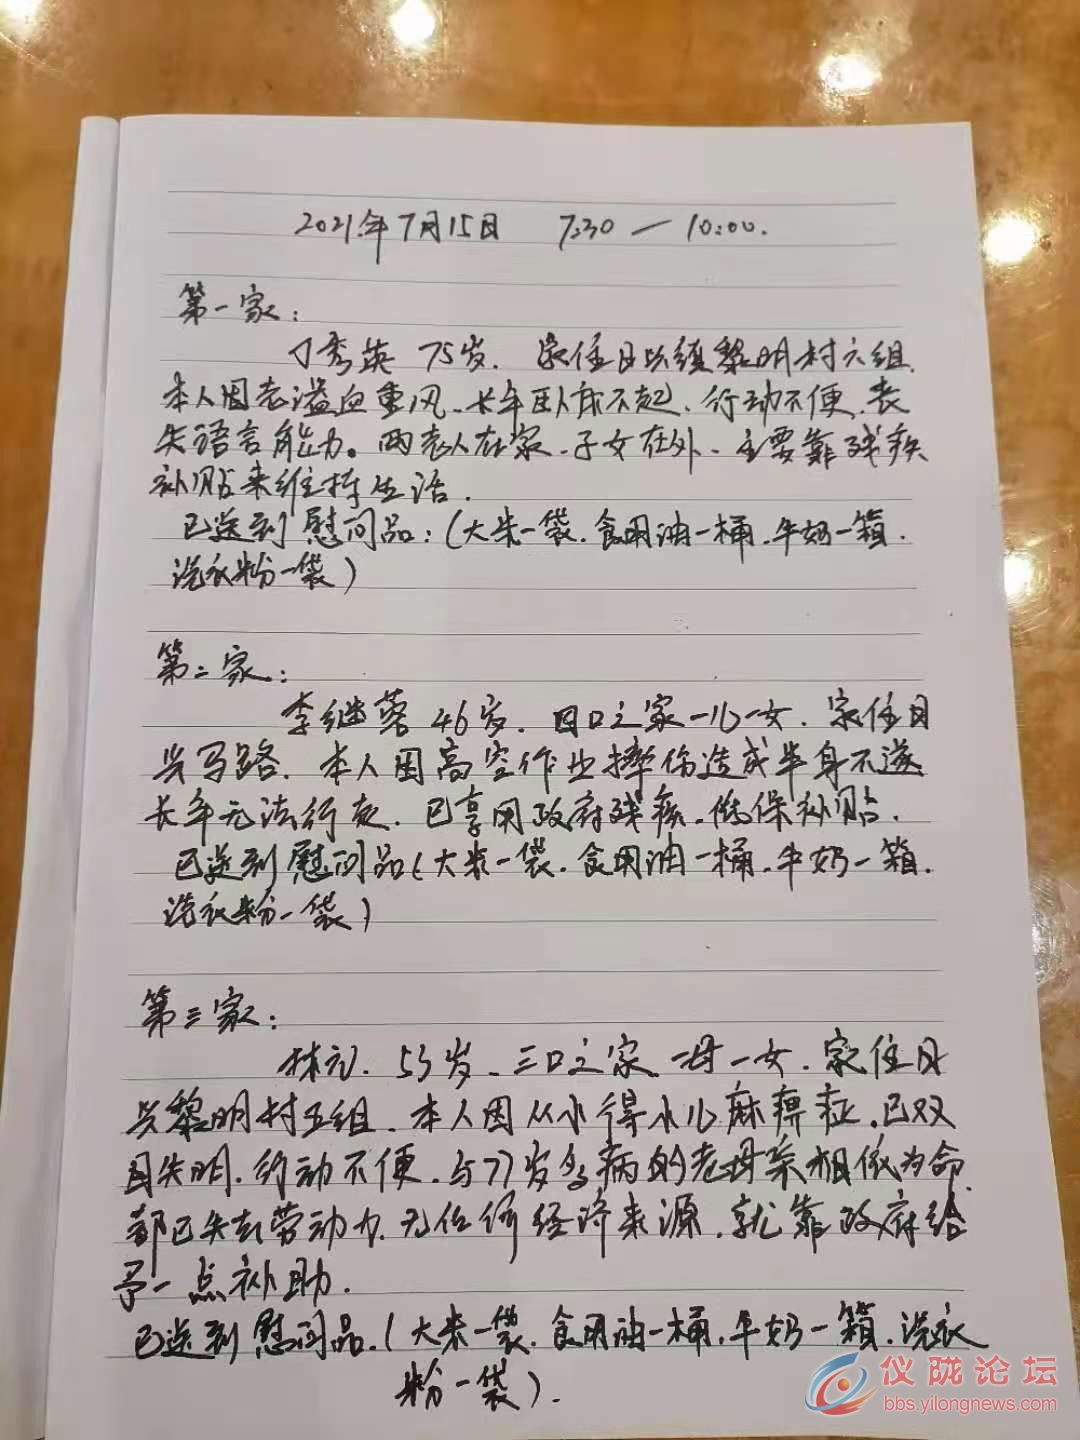 2021年7月15日 7:30 — 10:00.
第一家：
丁秀英 75岁. 家住日兴镇黎明村六组.
本人因老溢血重风、长年卧床不起、行动不便、丧
失语言能力。两老人在家、子女在外、主要靠残疾
补贴来维持生活.
已送到慰问品：（大米一袋.食用油一桶.牛奶一箱.
洗衣粉一袋）
第二家：
李继蓉 46岁. 四口之家一儿一女. 家住日
兴马路. 本人因高空作业摔伤造成半身不遂
长年无法行走. 已享用政府残疾、低保补贴.
已送到慰问品（大米一袋.食用油一桶.牛奶一箱.
洗衣粉一袋）
第三家：
林 53岁、三口之家 一母一女. 家住日
兴黎明村五组. 本人因从小得小儿麻痹症.已双
目失明.行动不便.与77岁多病的老母亲相依为命.
都已失去劳动力.无任何经济来源.就靠政府给
予一点补助.
已送到慰问品.（大米一袋.食用油一桶.牛奶一箱.洗衣
粉一袋）.
仪陇论坛
bbs.yilongnews.com